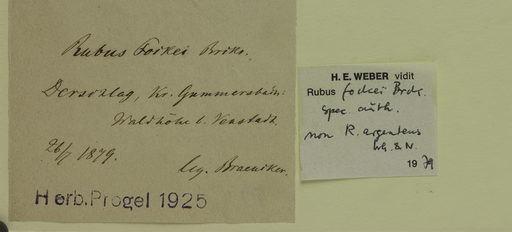 Rubus Fockei Brikr.
Derschlag, Kr. Gummersbach:
Waldhöhe b. Neustadt.
26/7 1879.
leg. Braeuker.
Herb. Progel 1925
H. E. WEBER vidit
Rubus fockei Brdr.
spec. auth.
non R. argenteus
Wh. & N.
19 79